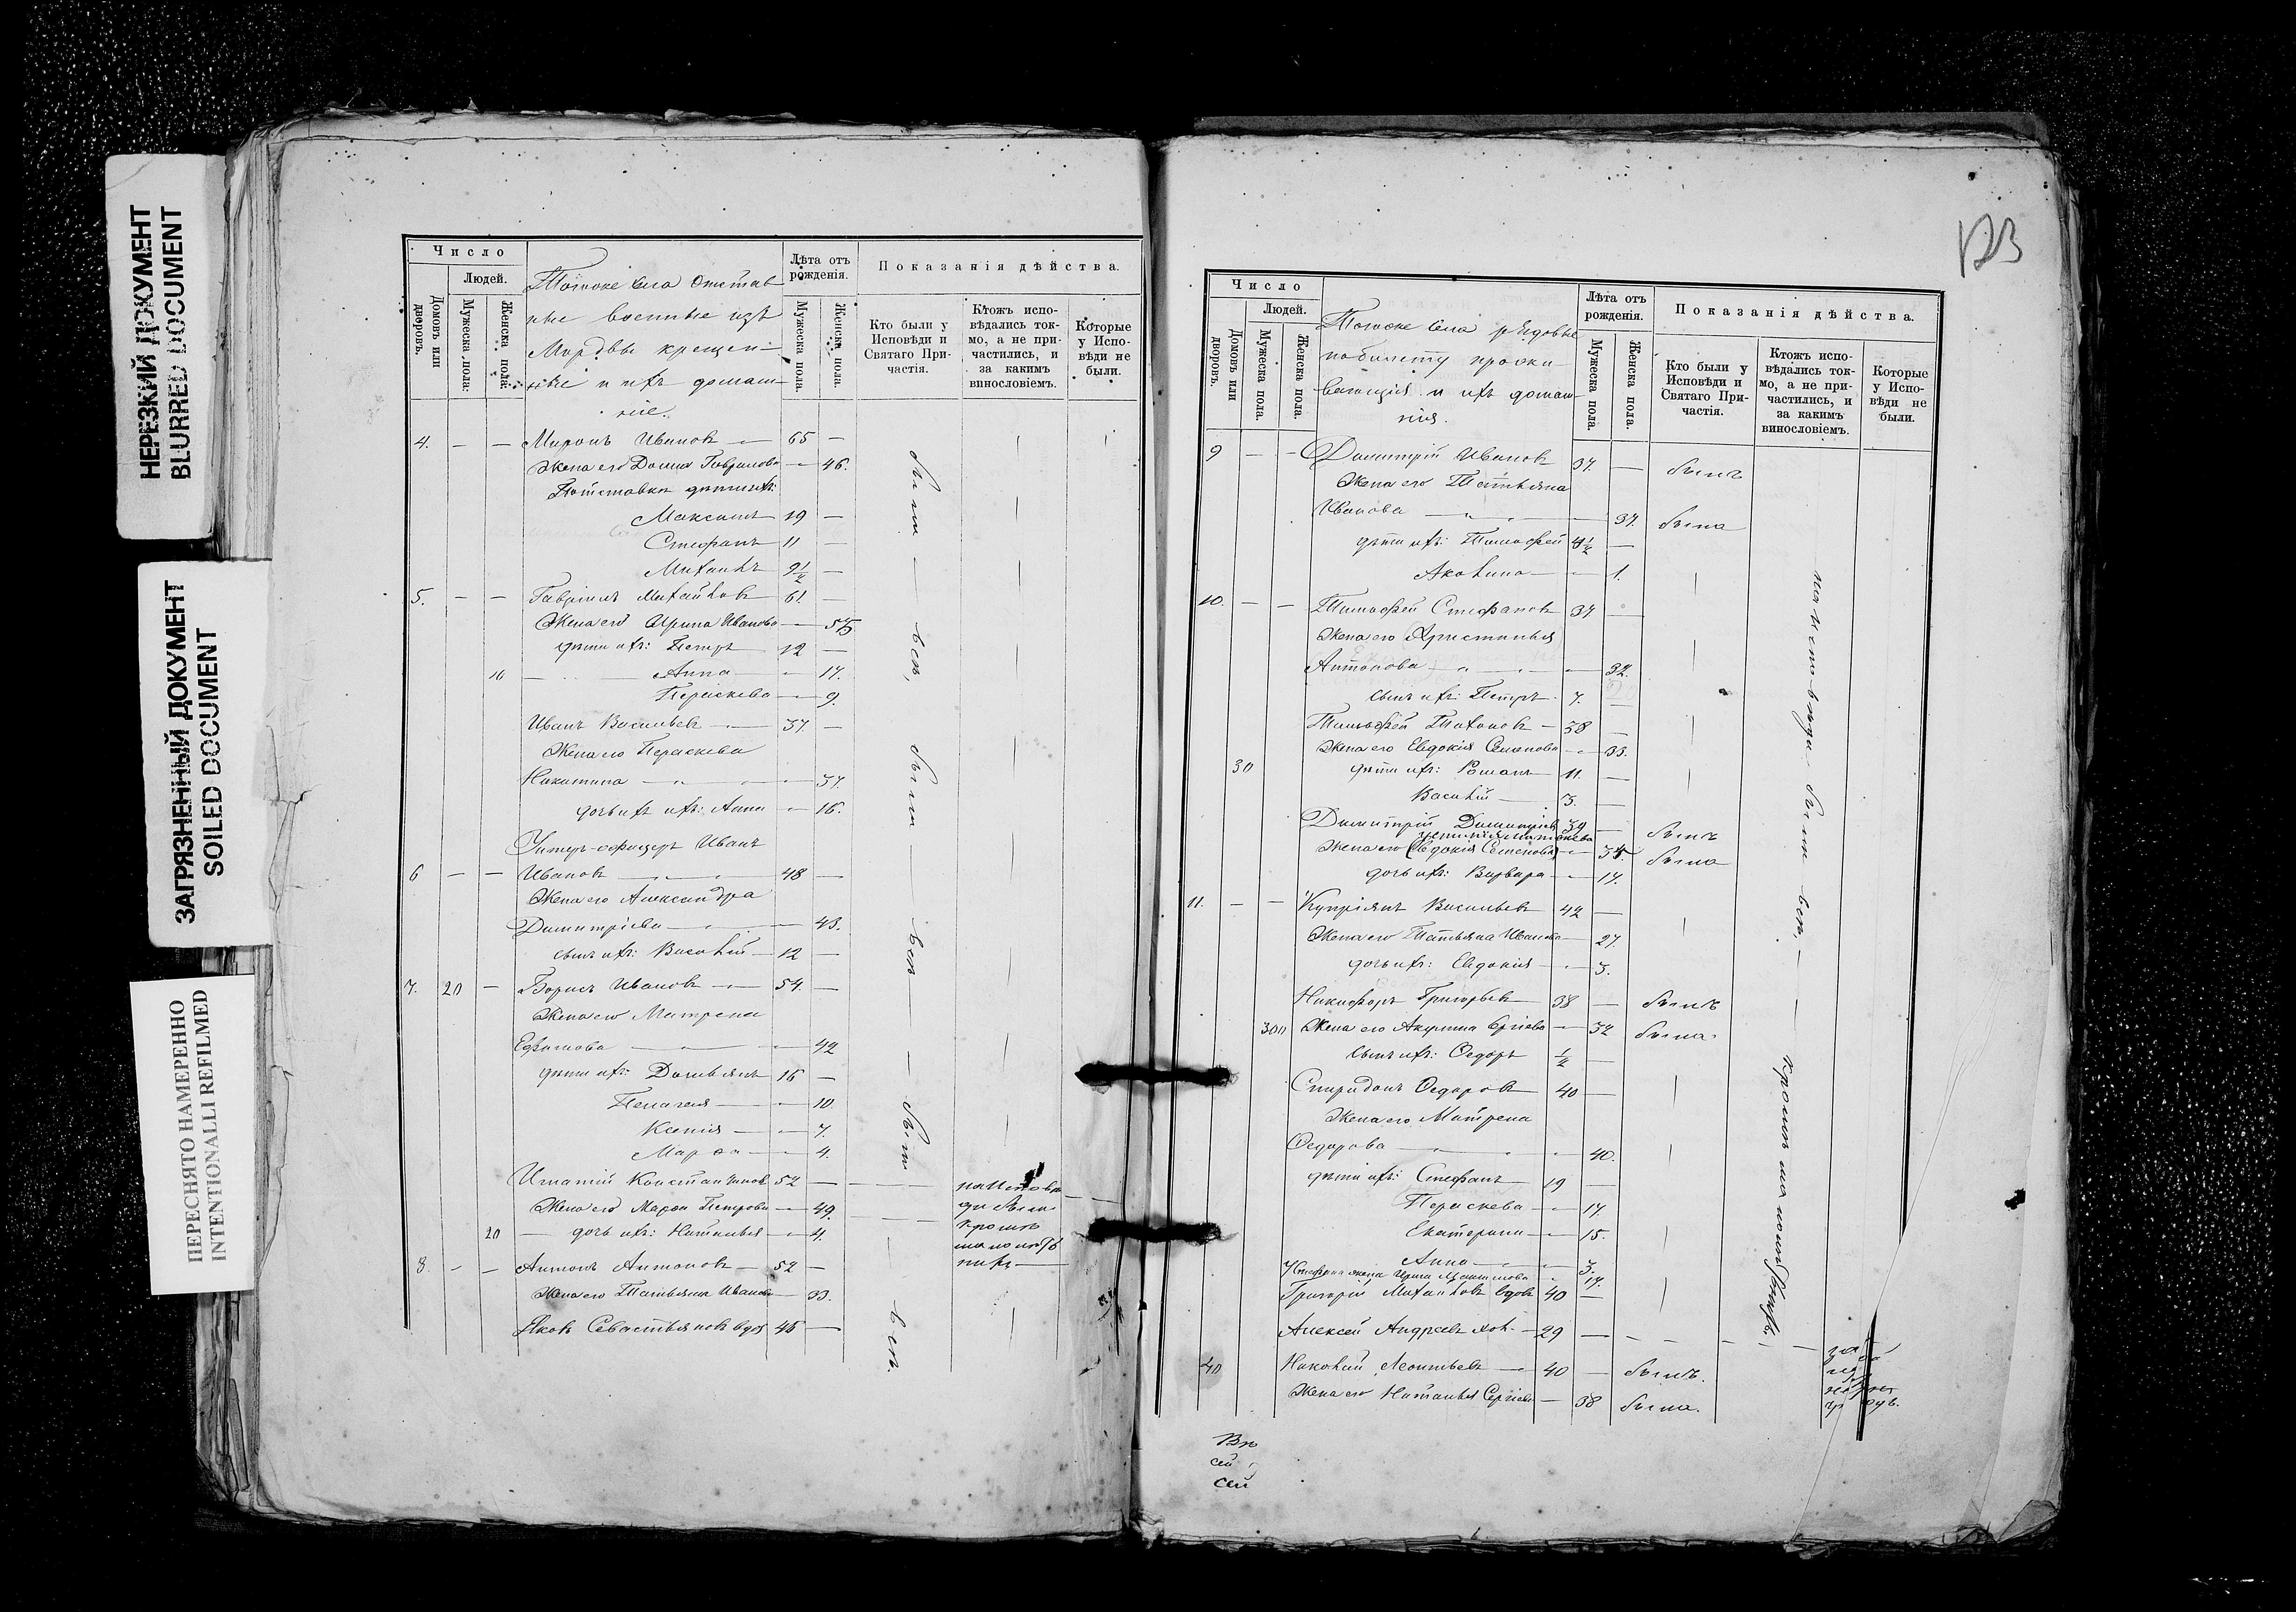 НЕРЕЗКИЙ ДОКУМЕНТ
BLURRED DOCUMENT
ЗАГРЯЗНЕННЫЙ ДОКУМЕНТ
SOILED DOCUMENT
ПЕРЕСНЯТО НАМЕРЕННО
INTENTIONALLI REFILMED
Число
Людей.
Домовъ или дворовъ.
Мужеска пола.
Женска пола.
Тогоже села отстав
ные военные изъ
Мордвы крещен-
ные и ихъ домаш-
ніе.
Лѣта отъ рожденія.
Мужеска пола.
Женска пола.
Показанія дѣйства.
Кто были у Исповѣди и Святаго Причастія.
Ктожъ исповѣдались токмо, а не причастились, и за какимъ винословіемъ.
Которые у Исповѣди не были.
4. — — Миронъ Ивановъ — 65 —
Жена его Домна Гаврилова — 46.
дѣти ихъ:
Максимъ 19 —
Стефанъ 11 —
Михаилъ 9½ —
5. — — Гавріилъ Михайловъ 61. —
Жена его Ирина Иванова —
дѣти ихъ: Петръ 12 —
10 — Анна — 17.
Параскева — 9.
Иванъ Васильевъ — 37. —
Жена его Параскева
Никитина — 37.
дочь ихъ: Анна — 16.
Унтеръ-офицеръ Иванъ
6 — — Ивановъ — 48 —
Жена его Александра
Димитріева — 43.
сынъ ихъ: Василій — 12 —
7. 20 — Борисъ Ивановъ — 54. —
Жена его Матрена
Ефимова — 42
дѣти ихъ: Даміанъ 16 —
Пелагея — 10.
Ксенія — 7.
Марѳа — 4.
Игнатій Константиновъ 52 —
Жена его Марѳа Петрова — 49.
20 — дочь ихъ: Наталья — 4.
8. — — Антонъ Антоновъ — 52 —
Жена его Татьяна Иванова — 33.
Яковъ Севастьяновъ вдов 45 —
были — всѣ,
были всѣ
— были
всѣ.
на исповѣ
ди были
кромѣ
малолѣт
нихъ
123
Число
Людей.
Домовъ или дворовъ.
Мужеска пола.
Женска пола.
Тогоже села рядовые
по билету прожи-
вающія и ихъ домаш-
нія.
Лѣта отъ рожденія.
Мужеска пола.
Женска пола.
Показанія дѣйства.
Кто были у Исповѣди и Святаго Причастія.
Ктожъ исповѣдались токмо, а не причастились, и за какимъ винословіемъ.
Которые у Исповѣди не были.
9 — — Димитрій Ивановъ 37. — былъ
Жена его Татьяна
Иванова — 37. была
дѣти ихъ: Тимофей 4½ —
Акилина — 1.
10. — — Тимофей Стефановъ 37 —
Жена его Христинья
Антонова — 32.
сынъ ихъ: Петръ 7. —
Тимофей Тихоновъ — 38 —
Жена его Евдокія Семенова — 33.
30 дѣти ихъ: Романъ 11. —
Василій 3. —
Димитрій Димитріевъ 39 — былъ
Жена его (Евдокія Семенова) — была
дочь ихъ: Варвара — 17.
11. — — Купріянъ Васильевъ 42 —
Жена его Татьяна Иванова — 27.
дочь ихъ: Евдокія — 3.
Никифоръ Григорьевъ 38 — былъ
300 Жена его Акулина Сергіева — 32 была.
сынъ ихъ: Ѳедоръ ½ —
Спиридонъ Ѳедоровъ 40 —
Жена его Матрена
Ѳедорова — 40.
дѣти ихъ: Стефанъ 19 —
Параскева — 17.
Екатерина — 15.
Анна — 3.
У Стефана жена Ирина 19.
Григорій Михайловъ вдовъ 40 —
Алексей Андреевъ хол. — 29 —
40 Николай Леонтьевъ — 40 — былъ.
Жена его Наталья Сергіева — 38 была.
на исповѣди были всѣ, —
кромѣ малолѣтнихъ.